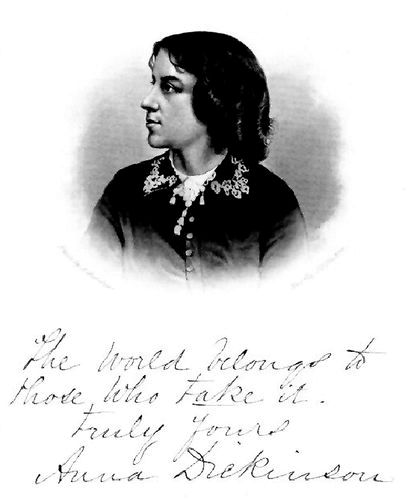 The World belongs to
those Who take it.
Truly Yours
Anna Dickinson